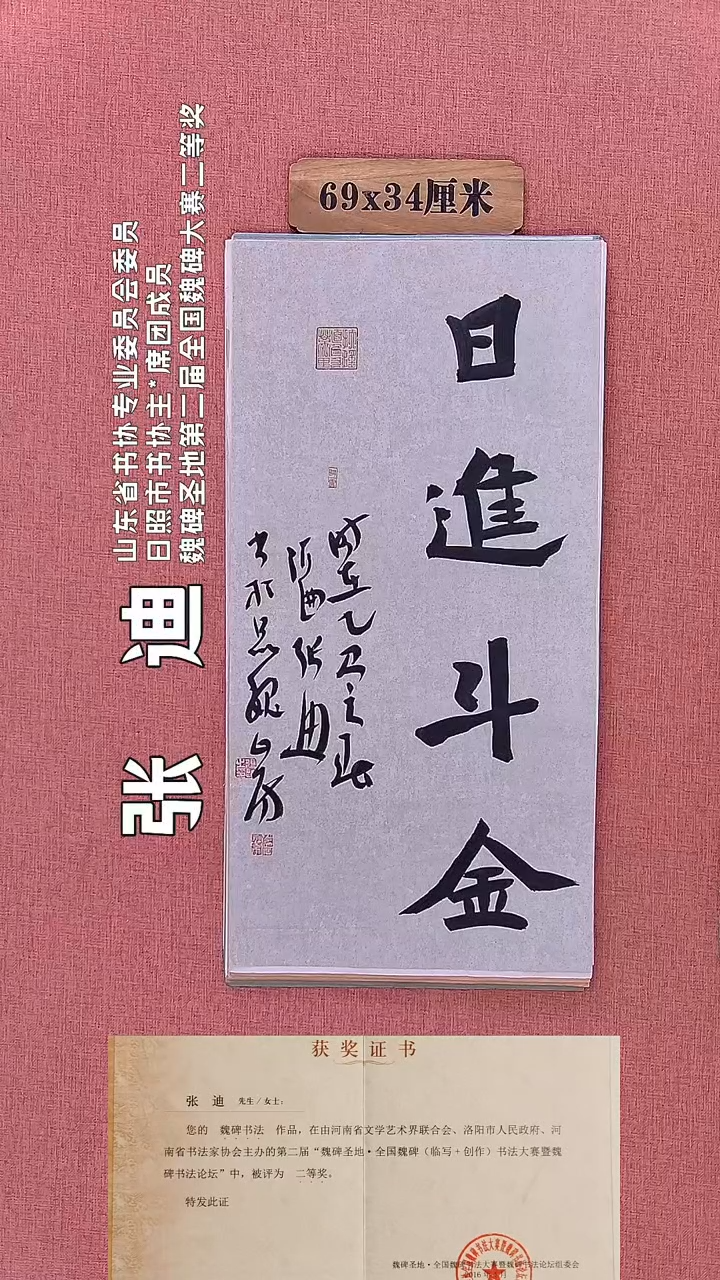 69x34厘米
日進斗金
时在乙巳之春
张迪
山东省书协专业委员会委员
日照市书协主*席团成员
魏碑圣地第二届全国魏碑大赛二等奖
张 迪
获奖证书
张 迪 先生/女士：
您的 魏碑书法 作品，在由河南省文学艺术界联合会、洛阳市人民政府、河
南省书法家协会主办的第二届“魏碑圣地·全国魏碑（临写+创作）书法大赛暨魏
碑书法论坛”中，被评为 二等奖。
特发此证
魏碑圣地·全国魏碑书法大赛暨魏碑书法论坛组委会